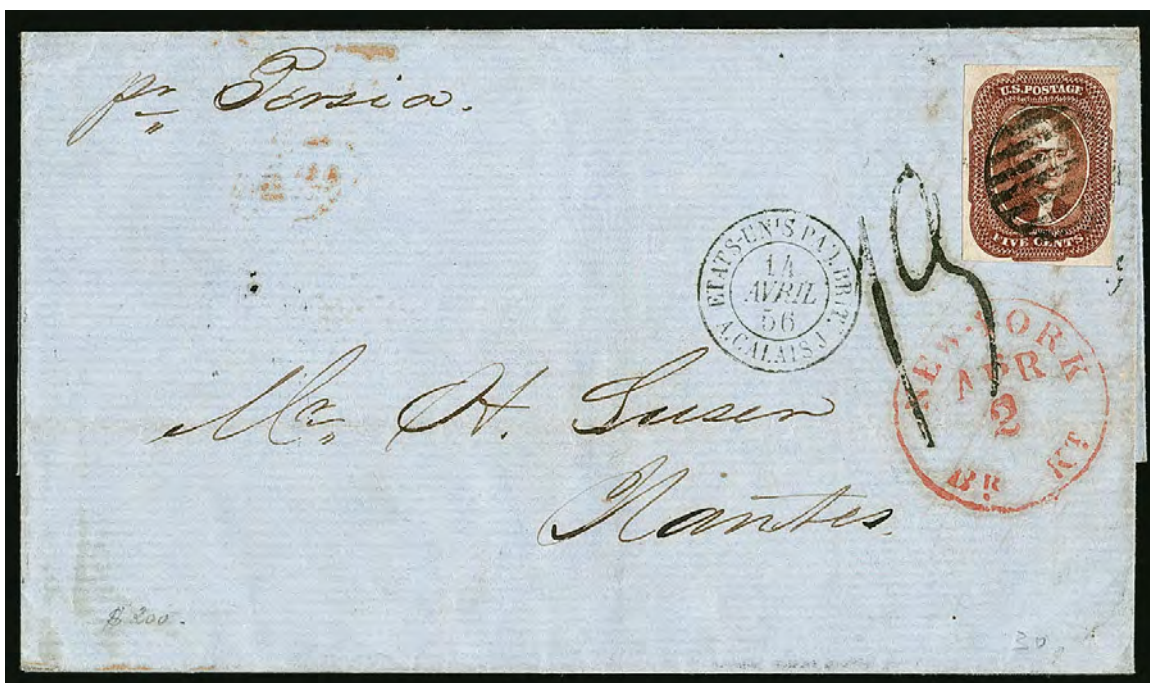 pr Persia.
U.S. POSTAGE
FIVE CENTS
ETATS-UNIS PAQ. BRIT.
14
AVRIL
56
A. CALAIS J.
NEW-YORK
APR
2
BR. PKT
Mr. H.
Nantes.
$200.
30